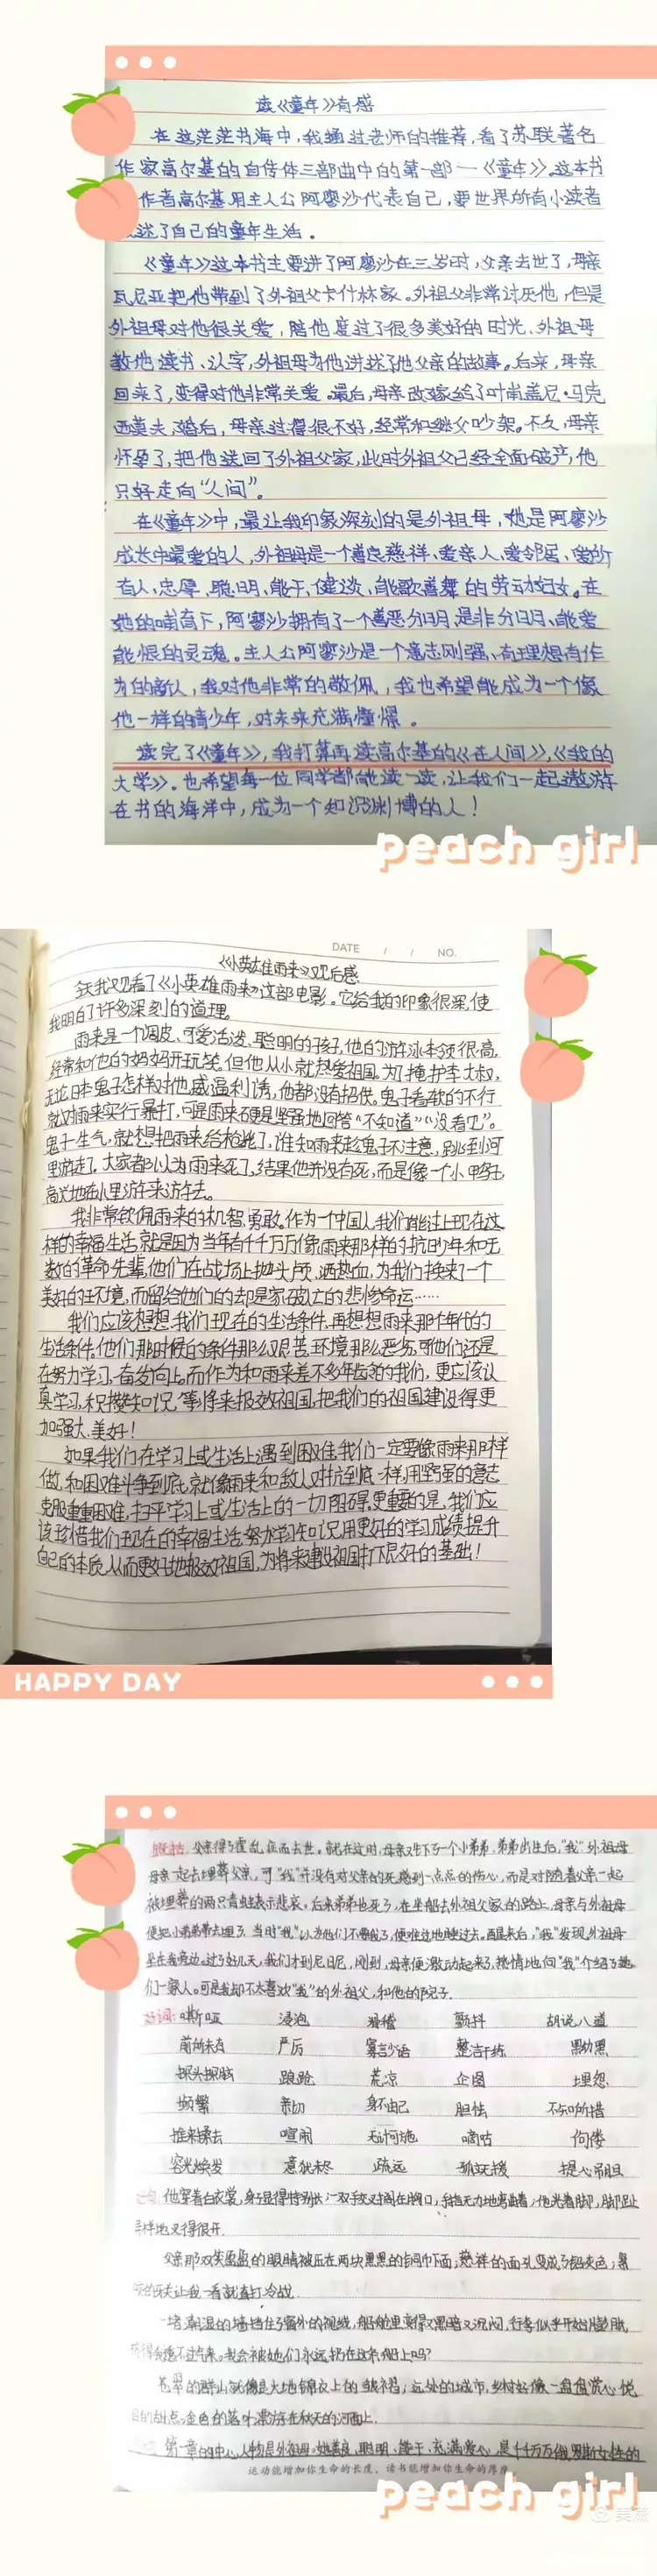 读《童年》有感
在这茫茫书海中，我通过老师的推荐，看了苏联著名
作家高尔基的自传体三部曲中的第一部—《童年》。这本书
作者高尔基用主人公阿廖沙代表自己，要世界所有小读者
述了自己的童年生活。
《童年》这本书主要讲了阿廖沙在三岁时，父亲去世了，母亲
瓦尼亚把他带到了外祖父卡什林家。外祖父非常讨厌他，但是
外祖母对他很关爱，陪他度过了很多美好的时光、外祖母
教他读书、认字，外祖母为他讲述了他父亲的故事。后来，母亲
回来了，变得对他非常关爱。最后，母亲改嫁给了叶尚盖尼·马克
西莫夫，婚后，母亲过得很不好，经常和继父吵架。不久，母亲
怀孕了，把他送回了外祖父家，此时外祖父已经全面破产，他
只好走向“人间”。
在《童年》中，最让我印象深刻的是外祖母，她是阿廖沙
成长中最爱的人，外祖母是一个善良慈祥、爱亲人、爱邻居、爱所
有人、忠厚、聪明、能干、健谈、能歌善舞的劳动妇女。在
她的哺育下，阿廖沙拥有了一个善恶分明、是非分明、能爱
能恨的灵魂。主人公阿廖沙是一个意志刚强、有理想有作
为的新人，我对他非常的敬佩，我也希望能成为一个像
他一样的青少年，对未来充满憧憬。
读完了《童年》，我打算再读高尔基的《在人间》，《我的
大学》。也希望每一位同学都能读一读，让我们一起遨游
在书的海洋中，成为一个知识渊博的人！
peach girl
DATE / / NO.
《小英雄雨来》观后感
今天我观看了《小英雄雨来》这部电影。它给我的印象很深，使
我明白了许多深刻的道理。
雨来是一个调皮、可爱活泼、聪明的孩子，他的游泳本领很高，
经常和他的妈妈开玩笑。但他从小就热爱祖国。为了掩护李大叔，
无论日本鬼子怎样对他威逼利诱，他都没有招供。鬼子看软的不行
就对雨来实行暴打，可是雨来硬是坚强地回答“不知道”“没看见”。
鬼子一生气，就想把雨来给枪毙了，谁知雨来趁鬼子不注意，跳到河
里游走了。大家都以为雨来死了，结果他并没有死，而是像一个小鸭子
高兴地在水里游来游去。
我非常钦佩雨来的机智、勇敢。作为一个中国人，我们能过上现在这
样的幸福生活，就是因为当年有千千万万像雨来那样的抗日少年和无
数的革命先辈，他们在战场上抛头颅，洒热血，为我们换来了一个
美好的环境，而留给他们的却是家破人亡的悲惨命运……
我们应该想想，我们现在的生活条件，再想想雨来那个年代的
生活条件，他们那时候的条件那么艰苦，环境那么恶劣，可他们还是
在努力学习，奋发向上。而作为和雨来差不多年龄的我们，更应该认
真学习，积攒知识，等将来报效祖国，把我们的祖国建设得更
加强大、美好！
如果我们在学习上或生活上遇到困难，我们一定要像雨来那样
做，和困难斗争到底，就像雨来和敌人对抗到底一样，用坚强的意志
克服重重困难，扫平学习上或生活上的一切阻碍。更重要的是，我们应
该珍惜我们现在的幸福生活，努力学习知识，用更好的学习成绩提升
自己的本质，从而更好地报效祖国，为将来建设祖国打下良好的基础！
HAPPY DAY
父亲得了霍乱症而去世。就在这时，母亲又生下了一个小弟弟，弟弟出生后，“我”外祖母
母亲一起去埋葬父亲，可“我”并没有对父亲的死感到一点点的伤心，而是对随着父亲一起
被埋葬的两只青蛙表示悲哀。后来弟弟也死了，在坐船去外祖父家的路上，母亲与外祖母
便把小弟弟带去埋了，当时“我”以为他们不要我了，便难过地睡过去。再醒来后，“我”发现外祖母
坐在我旁边。过了好几天，我们才到尼日尼，刚到，母亲便激动起来了，热情地向“我”介绍了她
们一家人。可是我却不太喜欢“我”的外祖父，和他的院子。
好词：嘶哑 浸泡 滑稽 颤抖 胡说八道
前所未有 严厉 寡言少语 整洁干练 黑黝黝
探头探脑 踉跄 荒凉 企图 埋怨
频繁 亲切 身不由己 胆怯 不知所措
推来搡去 喧闹 无计可施 嘀咕 佝偻
容光焕发 意犹未尽 疏远 孤立无援 提心吊胆
好句：他穿着白衣裳，身子显得特别长；一双手交叉搁在胸口，手指无力地弯曲着；他光着脚，脚趾
异样地叉得很开。
父亲那双笑盈盈的眼睛被压在两块黑黑的铜币下面；慈祥的面孔变成了铅灰色；暴
让我一看就直打冷战。
一堵潮湿的墙挡住了窗外的视线，船舱里变得又黑暗又沉闷，行李似乎开始膨胀，
挤得我透不过气来。我会被她们永远扔在这条船上吗？
苍翠的群山就像是大地锦衣上的皱褶；远处的城市，乡村好像一盘盘赏心悦
目的甜点，金色的落叶漂浮在秋天的河面上。
第一章的中心人物是外祖母，她善良、聪明、能干、充满爱心，是千千万万俄罗斯女性的
运动能增加你生命的长度，读书能增加你生命的厚度
peach girl
美篇